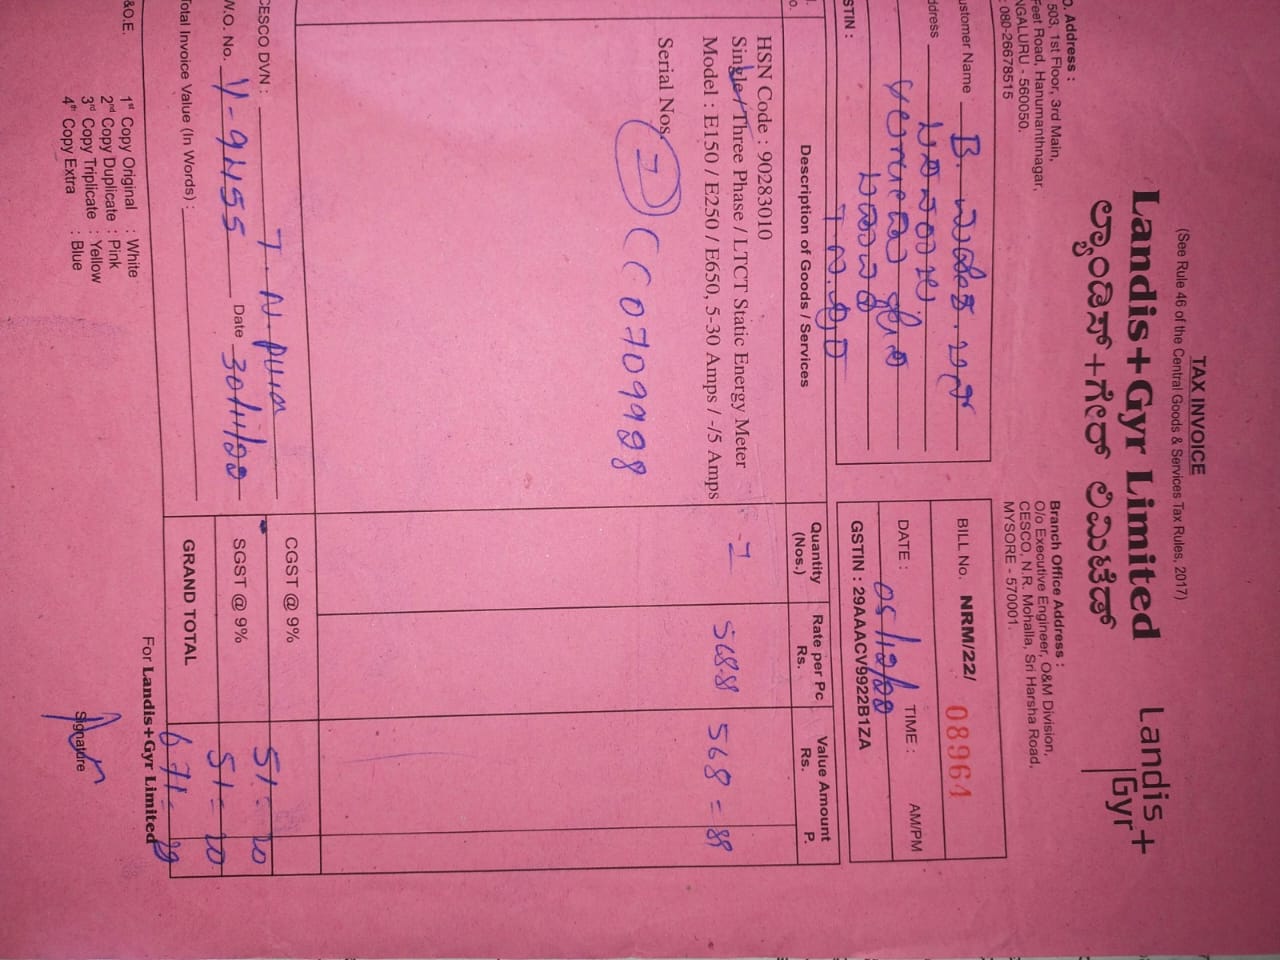 TAX INVOICE
(See Rule 46 of the Central Goods & Services Tax Rules, 2017)
Landis+Gyr Limited
ಲ್ಯಾಂಡಿಸ್+ಗೇರ್ ಲಿಮಿಟೆಡ್
Landis+
Gyr
O. Address :
503, 1st Floor, 3rd Main,
Feet Road, Hanumanthnagar,
NGALURU - 560050.
: 080-26678515
Branch Office Address :
O/o Executive Engineer, O&M Division,
CESCO, N.R. Mohalla, Sri Harsha Road,
MYSORE - 570001.
ustomer Name B.
ddress
STIN :
BILL No. NRM/22/ 08964
DATE : 05/12/22 TIME : AM/PM
GSTIN : 29AAACV9922B1ZA
Description of Goods / Services
Quantity (Nos.)
Rate per Pc Rs.
Value Amount Rs. P.
HSN Code : 90283010
Single / Three Phase / LTCT Static Energy Meter
Model : E150 / E250 / E650, 5-30 Amps / -/5 Amps
1 568.8 568=89
Serial Nos.
1 CC0709998
CESCO DVN : T.N.pura
W.O. No. V-94155 Date 30/11/22
Total Invoice Value (In Words) :
CGST @ 9% 51=20
SGST @ 9% 51=20
GRAND TOTAL 671=29
&O.E.
1st Copy Original : White
2nd Copy Duplicate : Pink
3rd Copy Triplicate : Yellow
4th Copy Extra : Blue
For Landis+Gyr Limited
Signature